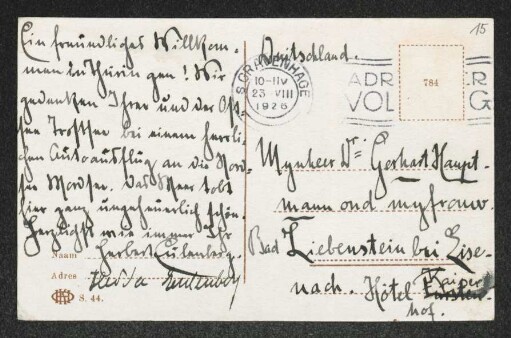 Ein freundliches Willkom-
men in Thüringen! Wir
gedenken Ihrer und der Ost-
see bei einem herrli-
chen Autoausflug an die Nord-
see Nordsee. Das Meer tobt
hier ganz ungeheuerlich schön.
Herzlichst wie immer Ihr
Herbert Eulenberg.
Naam
Adres Hedda Eulenberg
S. 44.
15
Deutschland.
'S GRAVENHAGE
10-11V
23 VIII
1926
ADR R
VOL G
784
Mynheer Dr. Gerhart Haupt-
mann ond myfrouw.
Bad Liebenstein bei Eise-
nach. Hôtel Kaiser
Fürsten-
hof.